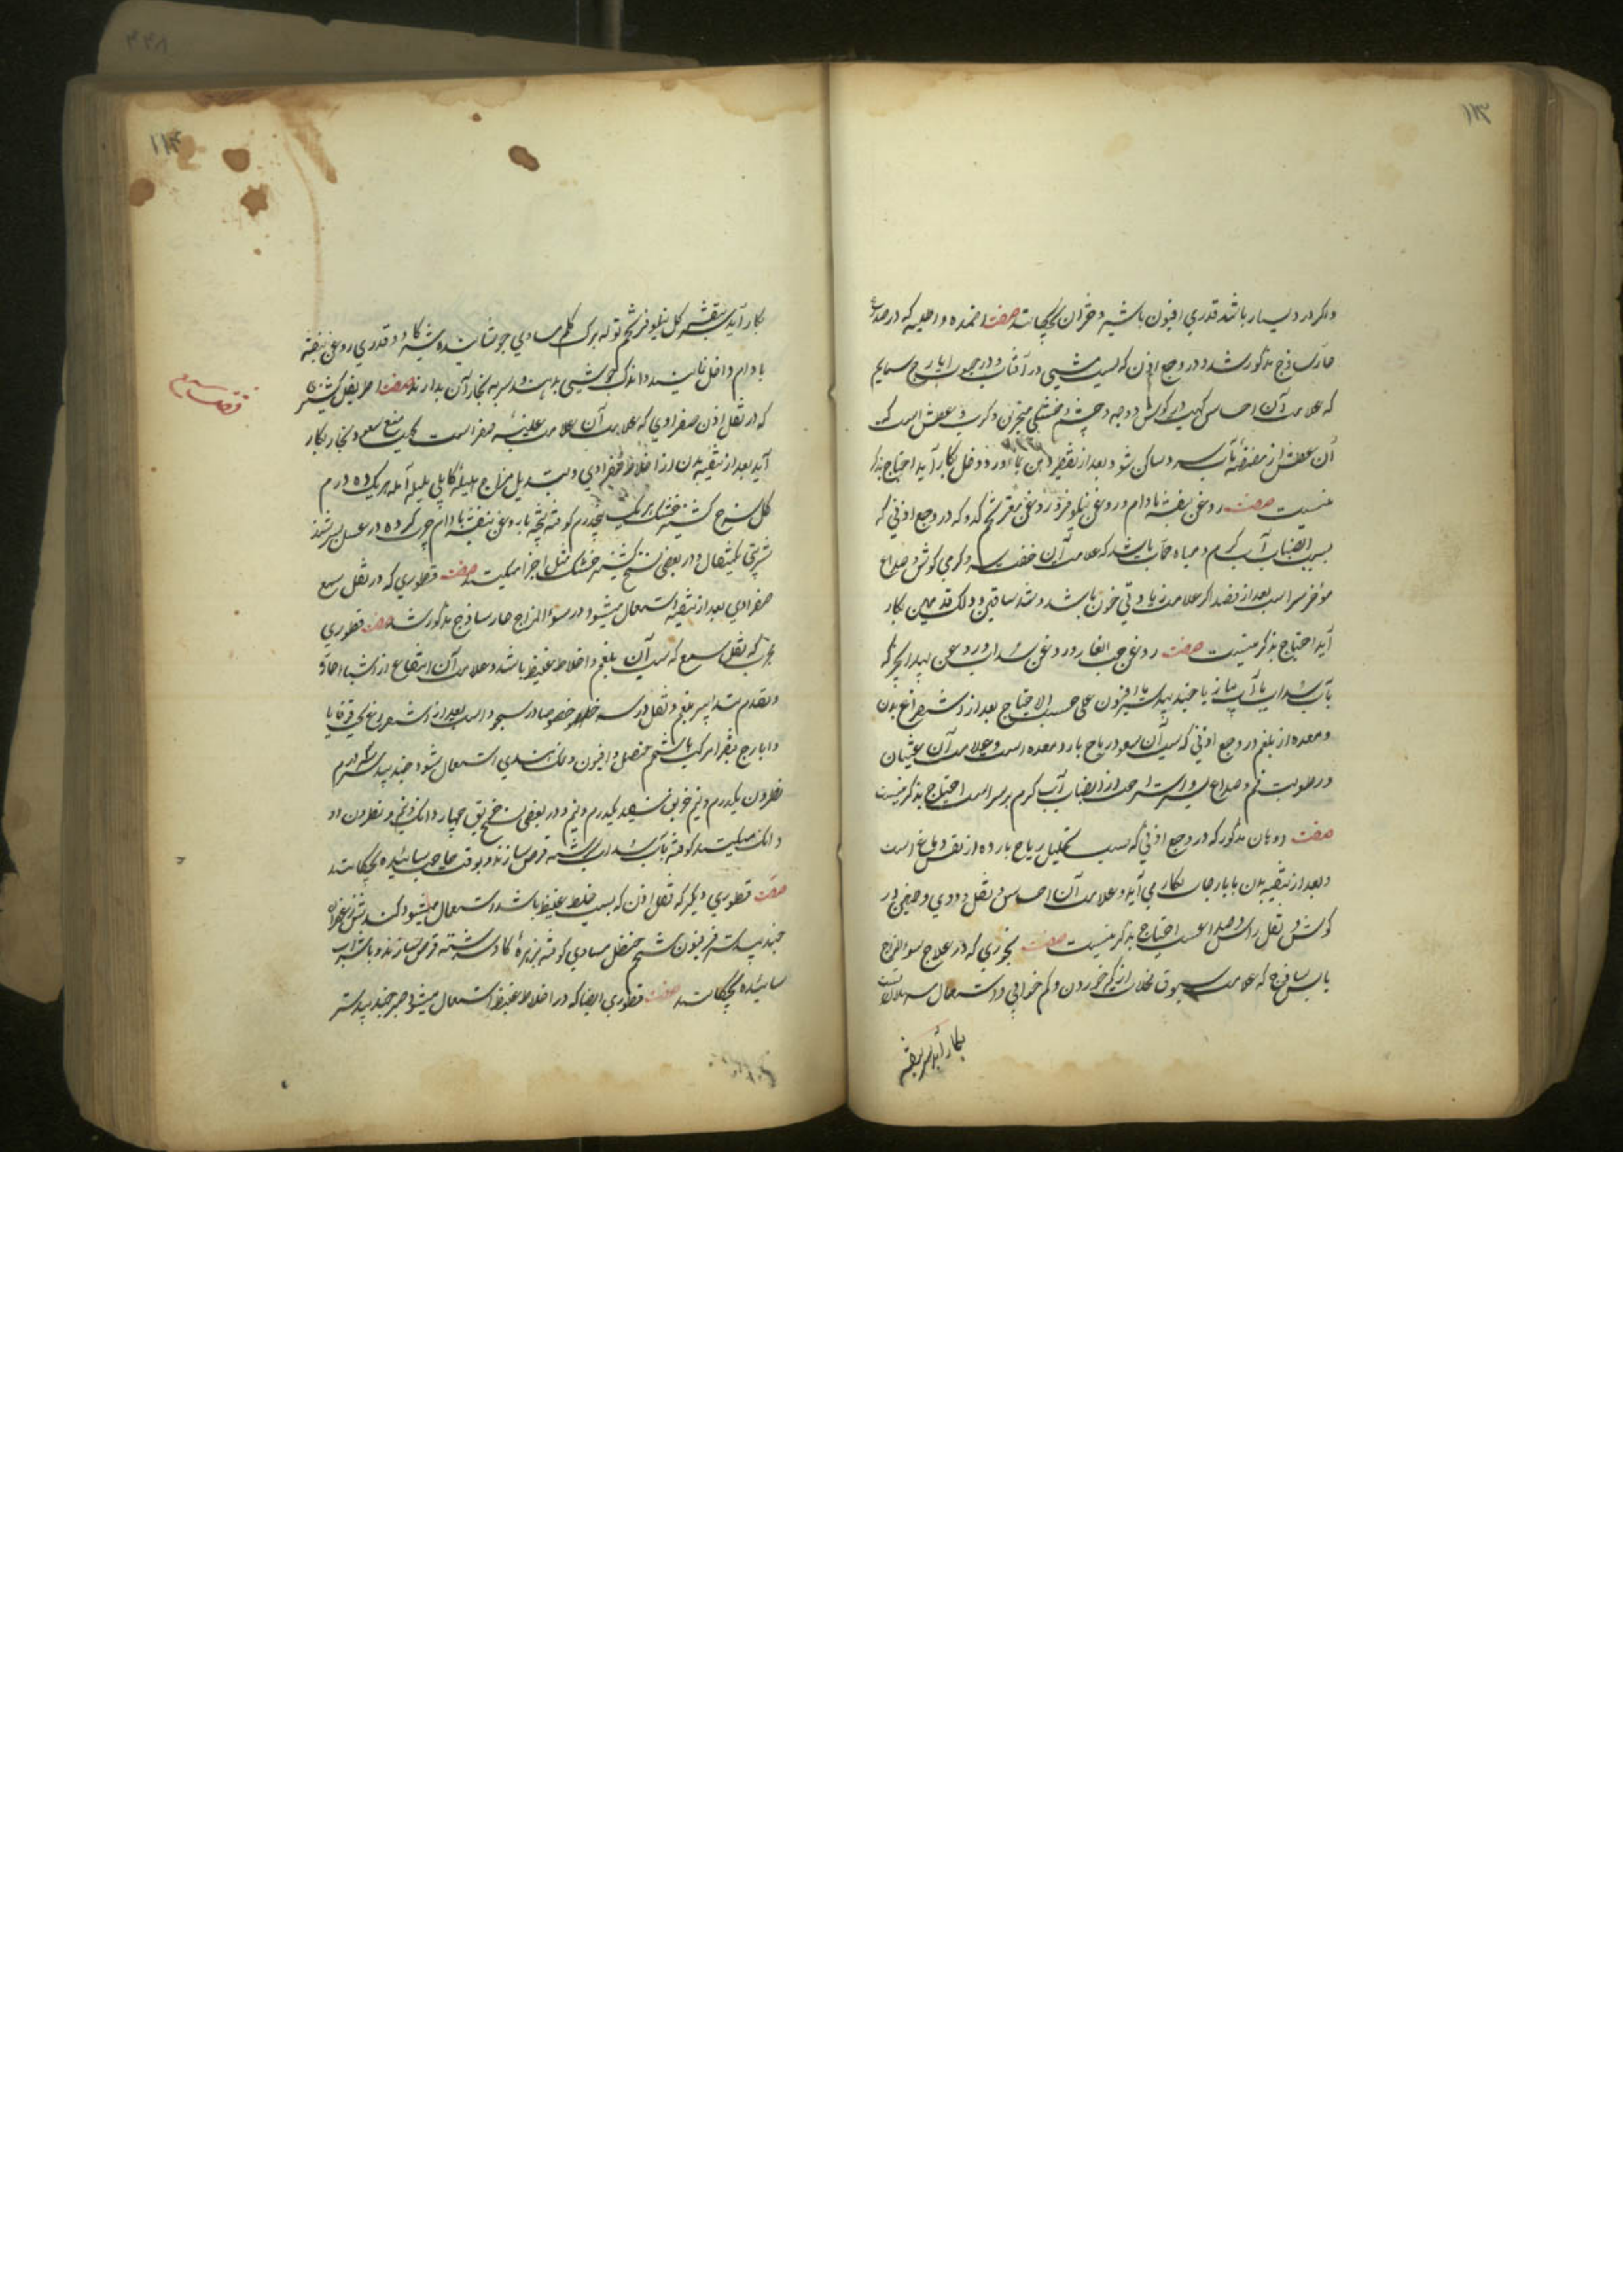 ۱۱۳
واگر درد بسیار باشد قدری افیون باشیر دختران بچکانند صفت اضمده و اطلیه که در صداع
حار ساذج مذکور شد در وجع اذن که بسبب مشی در آفتاب و در جنوب یا ریاح سمایم
که علامت آن احساس کهیب در کوش و وجه و چشم و خشکی منخرین و کرب و عطش است که
آن عطش از مضمضه بآب سرد ساکن شود بعد از تقطیر دهن با ورد و خل بکار آید احتیاج بذکر
نیست صفت روغن بنفشه بادام و روغن نیلوفر و روغن مغز تخم کدو که در وجع اذنی که
بسبب انصباب آب کرم و میاه حمات باشد که علامت آن خفت سر و کرمی کوش و صداع
مؤخر سر است بعد از فصد اگر علامت زیادتی خون باشد و شد ساقین و دلک قدمین بکار
آید احتیاج بذکر نیست صفت روغن حب الغار و روغن سداب و روغن بیدانجیر که
بآب سداب یا آب پیاز یا جندبیدستر یا افزون علی حسب الاحتیاج بعد از استفراغ بدن
و معده از بلغم در وجع اذنی که سبب آن صعود ریاح بارد معده است و علامت آن غثیان
و رطوبت فم و صداع سر و استراحت از انصباب آب کرم بر سر است احتیاج بذکر نیست
صفت دوهان مذکور که در وجع اذنی که بسبب تحلیل ریاح بارده از نفس دماغ است
و بعد از تنقیه بدن بایارجات بکار می آید و علامت آن احساس ثقل و دوی و طنین در
کوش و ثقل راس و صداعست احتیاج بذکر نیست صفت بخوری که در علاج سوء المزاج
یابس ساذج که علامت سبوق تخلات از کم خوردن و کم خوابی و استعمال مسهلات
بکار آید بنفشه
۱۱۴
بکار آید بنفشه کل نیلوفر تخم تو له برک کلم مساوی جوشانیده شیر کاو و قدری روغن بنفشه
بادام داخل نمایند و اندک جوشی بدهند و سر به بخار آن بدارند صفت اطریفل کشنیزی
که در ثقل اذن صفراوی که علامت آن علامت غلبه صفراست بجهت منع صعود بخار بکار
آید بعد از تنقیه بدن از اخلاط صفراوی و تبدیل مزاج هلیله کابلی بلیله آمله هر یک ده درم
کل سرخ کشنیز خشک هر یک پنجدرم کوفته بیخته با روغن بنفشه بادام چرب کرده در عسل بسرشند
شربتی یکمثقال و در بعضی نسخ کشنیز خشک مثل اجزا میکیرند صفت قطوری که در ثقل سمع
صفراوی بعد از تنقیه استعمال میشود در سوء المزاج حار ساذج مذکور شد صفت قطوری
مجرب که ثقل سمع که سبب آن بلغم و اخلاط غلیظ باشد و علامت آن انتفاع از اشیاء حاره
و تقدم تدابیر بلغم و ثقل در سر خصوصا در سجود است بعد از استفراغ بحب قوقایا
و ایارج فیقرا مرکب با شحم حنظل و افیون و نمک هندی استعمال شود جندبیدستر درم
نطرون یکدرم و نیم خربق سفید یکدرم و نیم و در بعضی نسخ خربق چهار دانک و نیم و نطرون دو
دانک میکیرند کوفته بآب سداب سرشته قرص سازند و بوقت حاجت سائیده بچکانند
صفت قطوری دیگر که ثقل اذن که بسبب خلط غلیظ باشد استعمال میشود
جندبیدستر فرفیون شحم حنظل مساوی کوفته بزهرهٔ کاو سرشته قرص سازند و با شراب
سائیده بچکانند صفت قطوری ایضا که در اخلاط غلیظ استعمال میشود صبر جندبیدستر